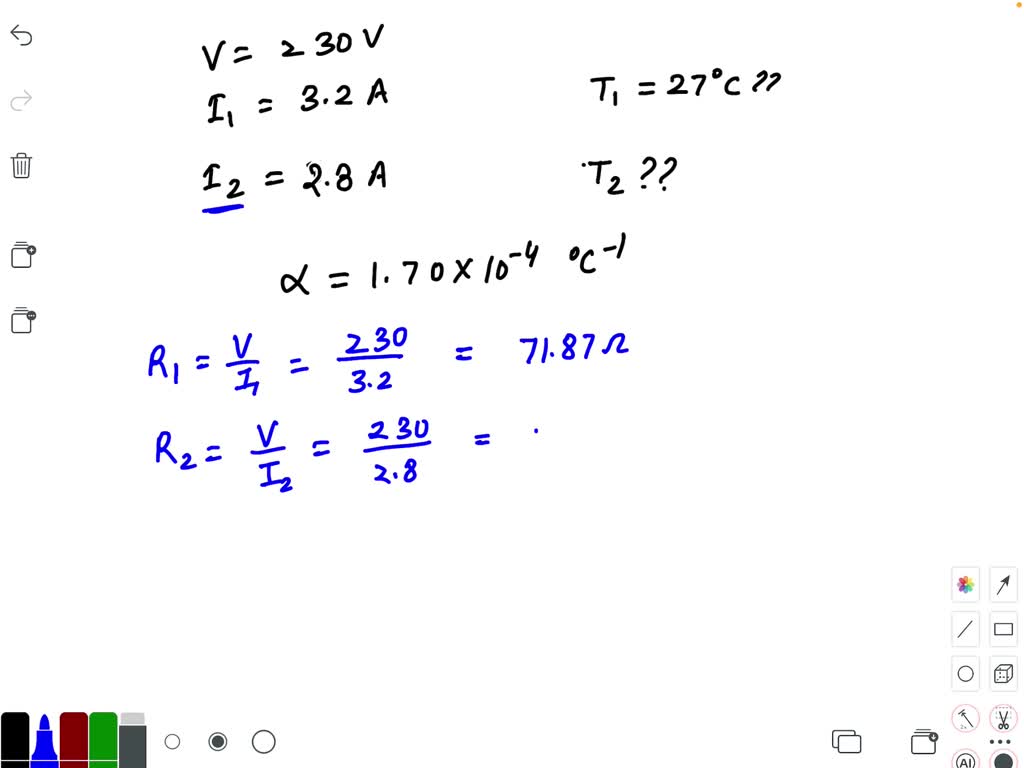 V = 230 V
I₁ = 3.2 A
T₁ = 27°C ??
I₂ = 2.8 A
T₂ ??
α = 1.70 × 10⁻⁴ °C⁻¹
R₁ = V/I₁ = 230/3.2 = 71.87 Ω
R₂ = V/I₂ = 230/2.8 =
AI